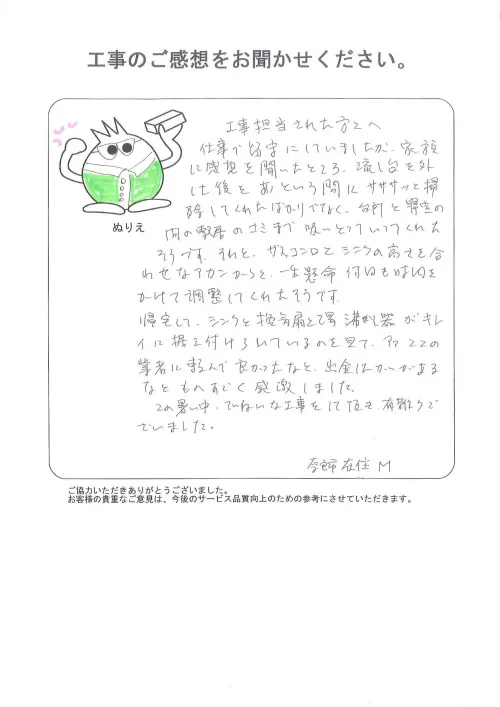 工事のご感想をお聞かせください。
ぬりえ
工事担当された方々へ
仕事で留守にしていましたが、家族
に感想を聞いたところ、流し台を外
した後をあという間にササッと掃
除してくれたばかりでなく、台所と寝室の
間の敷居のゴミまで吸いとっていってくれた
そうです。それと、ガスコンロとシンクの高さを合
わせなアカンからと、一生懸命 何回も時間を
かけて調整してくれたそうです。
帰宅して、シンクと換気扇と湯沸し器がキレ
イに据え付けられているのを見て、アァココの
業者に頼んで良かったなと、出金はかいがある
なとものすごく感激しました。
この暑い中、ていねいな工事をして頂き、有難うご
ざいました。
在住 M
ご協力いただきありがとうございました。
お客様の貴重なご意見は、今後のサービス品質向上のための参考にさせていただきます。